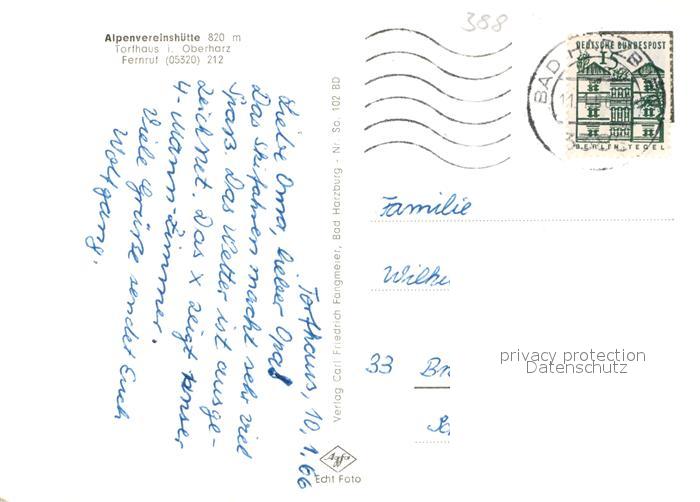 388
Alpenvereinshütte 820 m
Torfhaus i. Oberharz
Fernruf (05320) 212
DEUTSCHE BUNDESPOST
15
BERLIN-TEGEL
BAD HARZB
11
Torfhaus, 10.1.66
Liebe Oma, lieber Opa!
Das Skifahren macht sehr viel
Spaß. Das Wetter ist ausge-
zeichnet. Das x zeigt unser
4-Mann-Zimmer.
Viele Grüße sendet Euch
Wolfgang.
Verlag Carl Friedrich Fangmeier, Bad Harzburg - Nr. So. 102 BD
Agfa
Echt Foto
Familie
33
privacy protection
Datenschutz